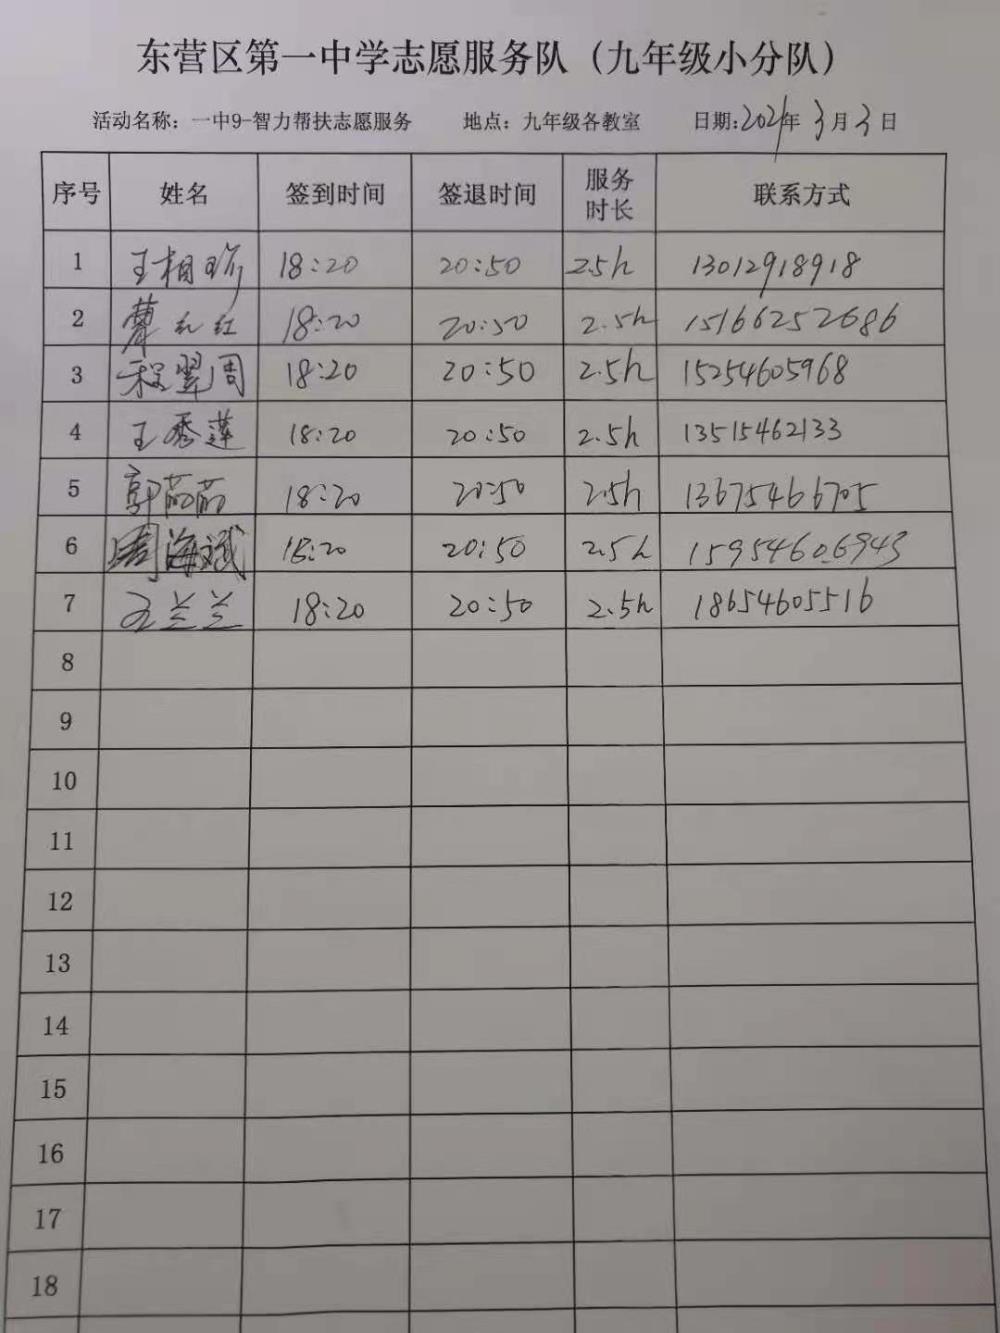 东营区第一中学志愿服务队（九年级小分队）
活动名称：一中9-智力帮扶志愿服务 地点：九年级各教室 日期:2021年3月3日
序号 姓名 签到时间 签退时间 服务时长 联系方式
1 王相珍 18:20 20:50 2.5h 13012918918
2 红 18:20 20:50 2.5h 15166252686
3 程翠周 18:20 20:50 2.5h 15254605968
4 王秀莲 18:20 20:50 2.5h 13515462133
5 郭茹茹 18:20 20:50 2.5h 13675466705
6 周海斌 18:20 20:50 2.5h 15954606943
7 王兰兰 18:20 20:50 2.5h 18654605516
8
9
10
11
12
13
14
15
16
17
18